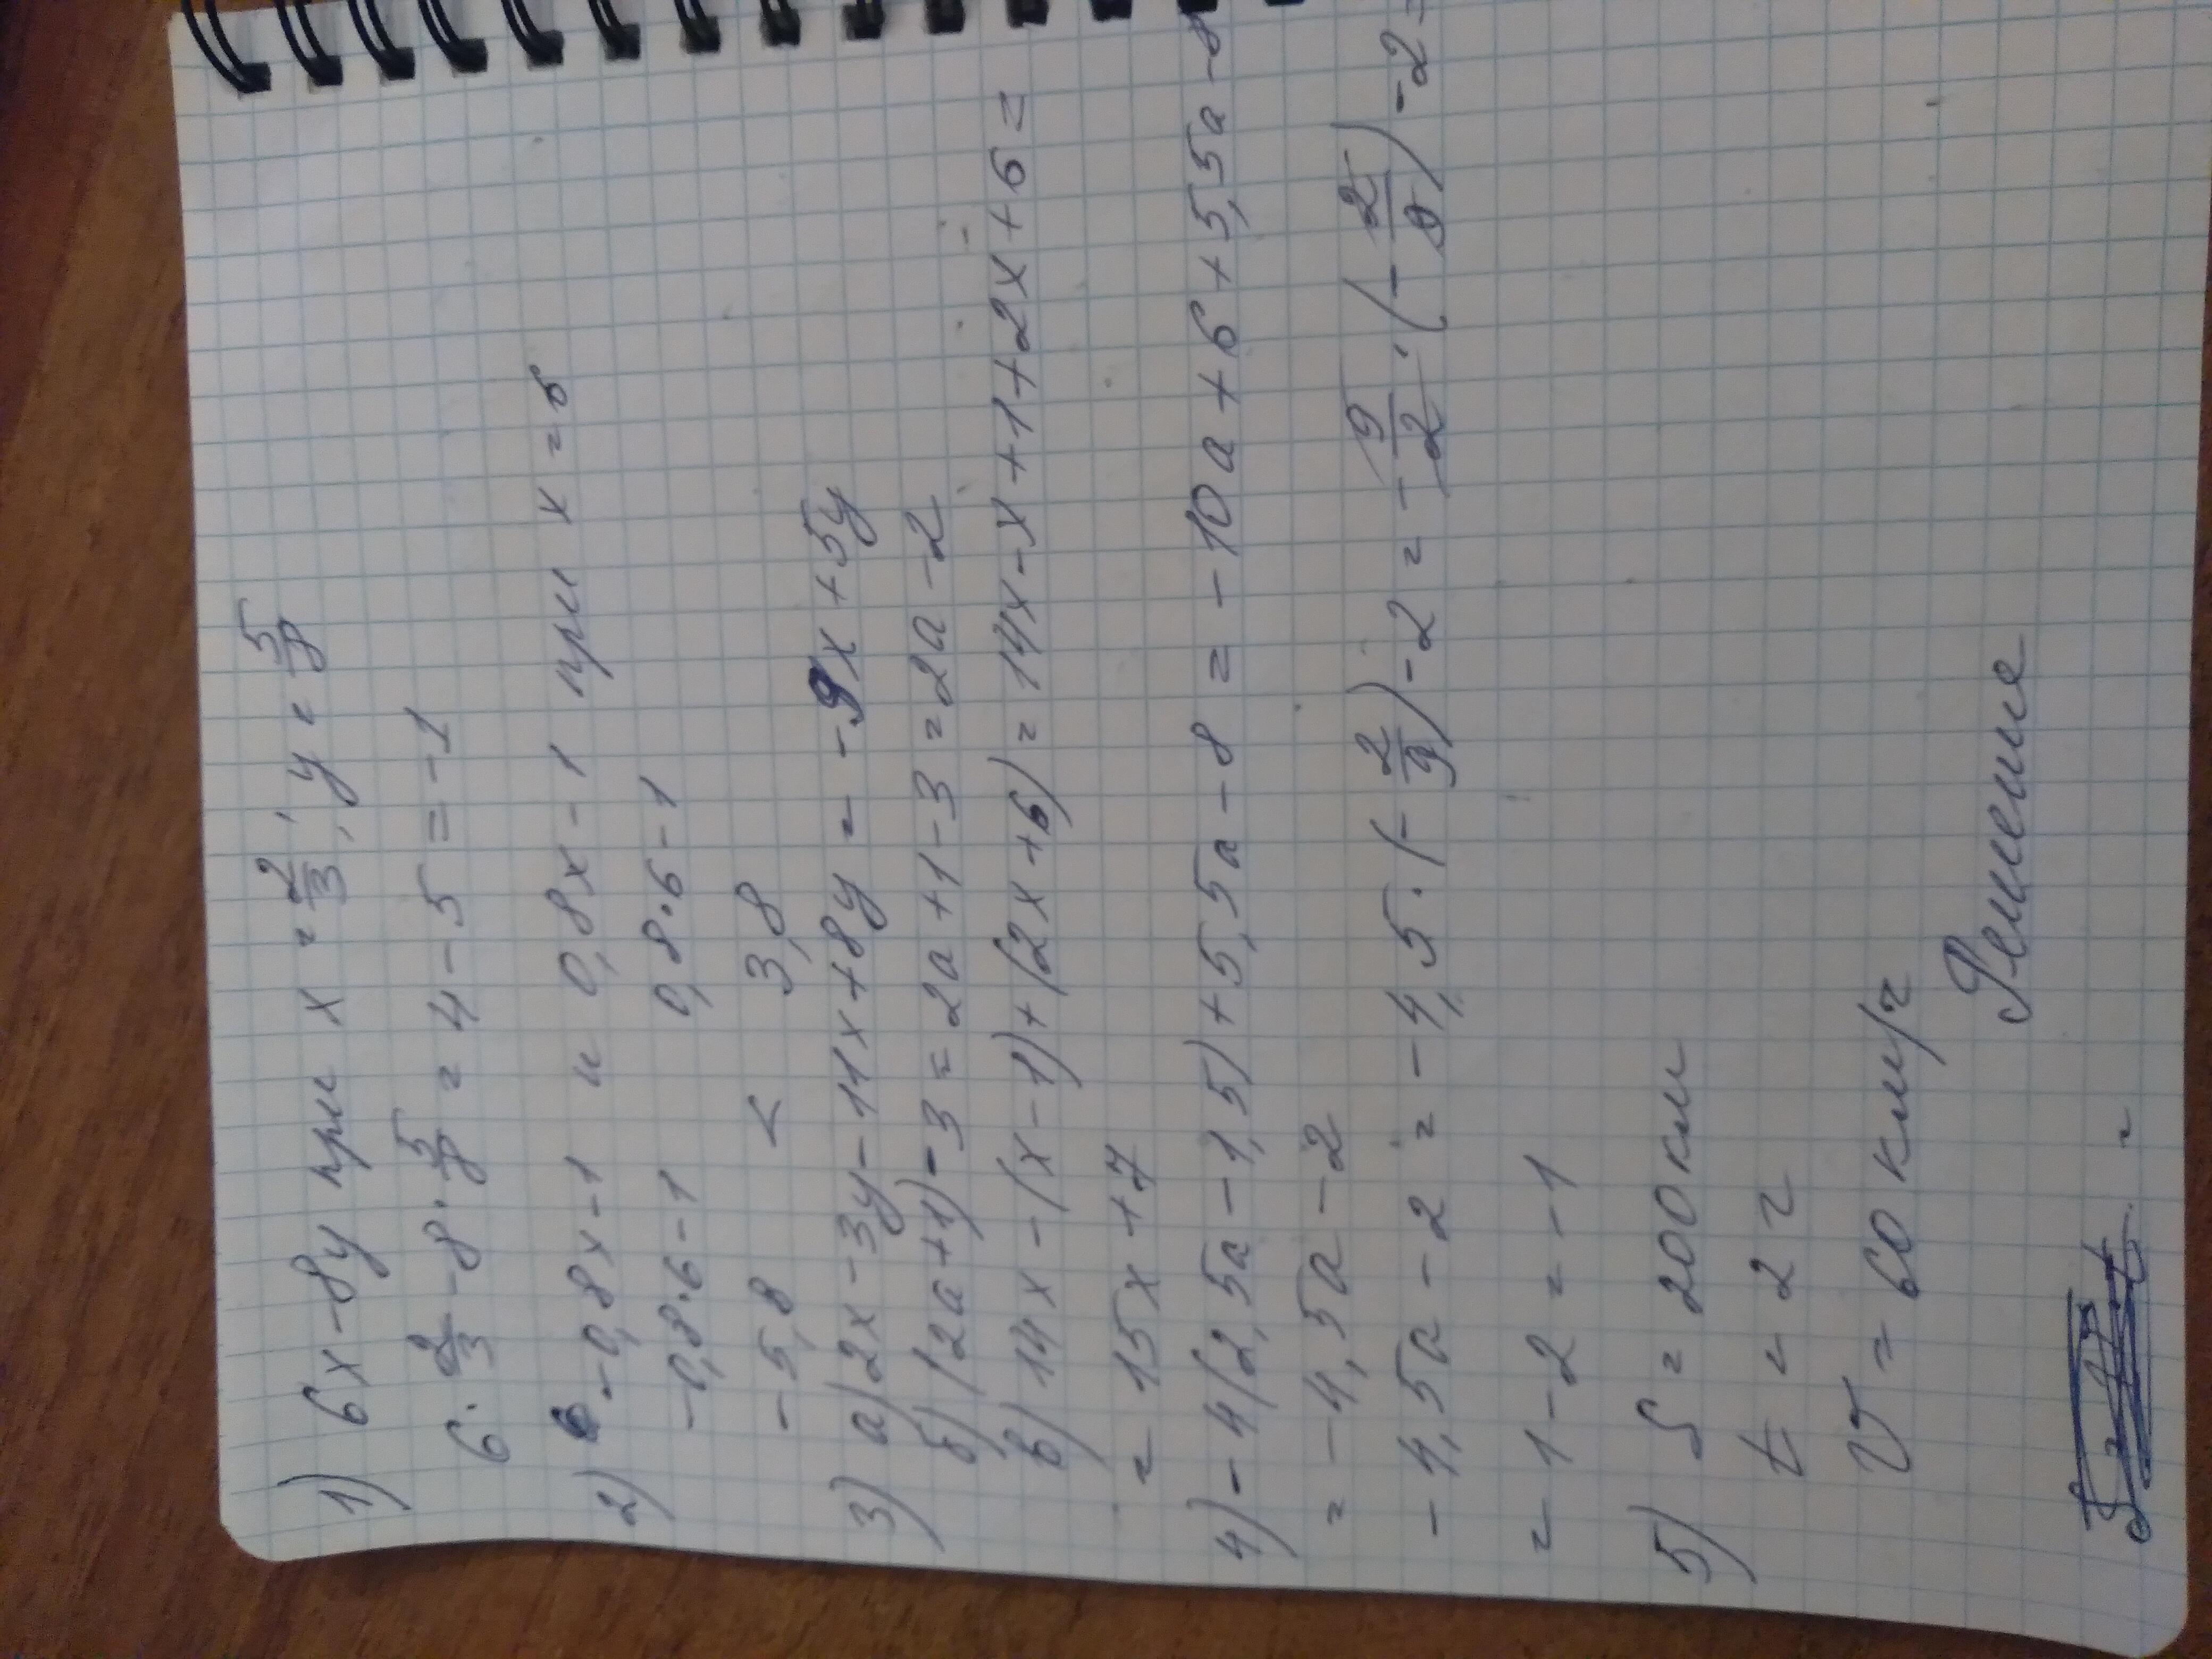 1) 6x - 8y при x = 2/3, y = 5/8
6 · 2/3 - 8 · 5/8 = 4 - 5 = -1
2) -0,8x - 1 и 0,8x - 1 при x = 6
-0,8·6-1 0,8·6-1
-5,8 < 3,8
3) а) 2x - 3y - 11x + 8y = -9x + 5y
б) (2a+1) - 3 = 2a + 1 - 3 = 2a - 2
в) 14x - (x - 1) + (2x + 6) = 14x - x + 1 + 2x + 6 =
= 15x + 7
4) - 4(2,5a - 1,5) + 5,5a - 8 = -10a + 6 + 5,5a - 8
= -4,5a - 2
-4,5a - 2 = -4,5 · (-2/9) - 2 = -9/2 · (-2/9) - 2 =
= 1 - 2 = -1
5) S = 200 км
t = 2 ч
V = 60 км/ч
Решение
=